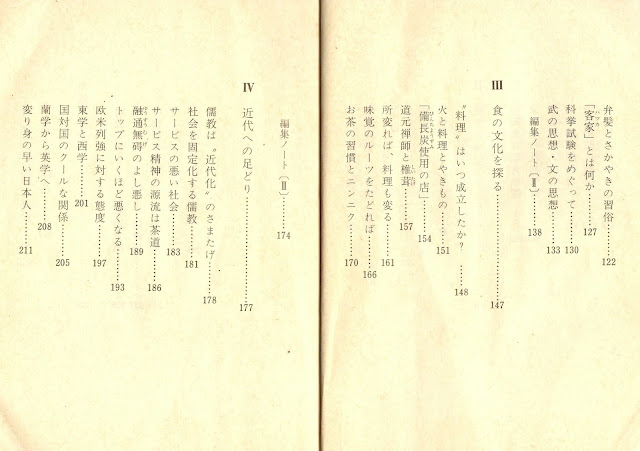 弁髪とさかやきの習俗………122
「客家」とは何か………127
科挙試験をめぐって………130
武の思想・文の思想………133
編集ノート〔Ⅱ〕………138
Ⅲ 食の文化を探る………147
〝料理〟はいつ成立したか?………148
火と料理とやきもの………151
「備長炭使用の店」………154
道元禅師と椎茸………157
所変れば、料理も変る………161
味覚のルーツをたどれば………166
お茶の習慣とニンニク………170
編集ノート〔Ⅲ〕………174
Ⅳ 近代への足どり………177
儒教は〝近代化〟のさまたげ………178
社会を固定化する儒教………181
サービスの悪い社会………183
サービス精神の源流は茶道………186
融通無碍のよし悪し………189
トップにいくほど悪くなる………193
欧米列強に対する態度………197
東学と西学………201
国対国のクールな関係………205
蘭学から英学へ………208
変り身の早い日本人………211